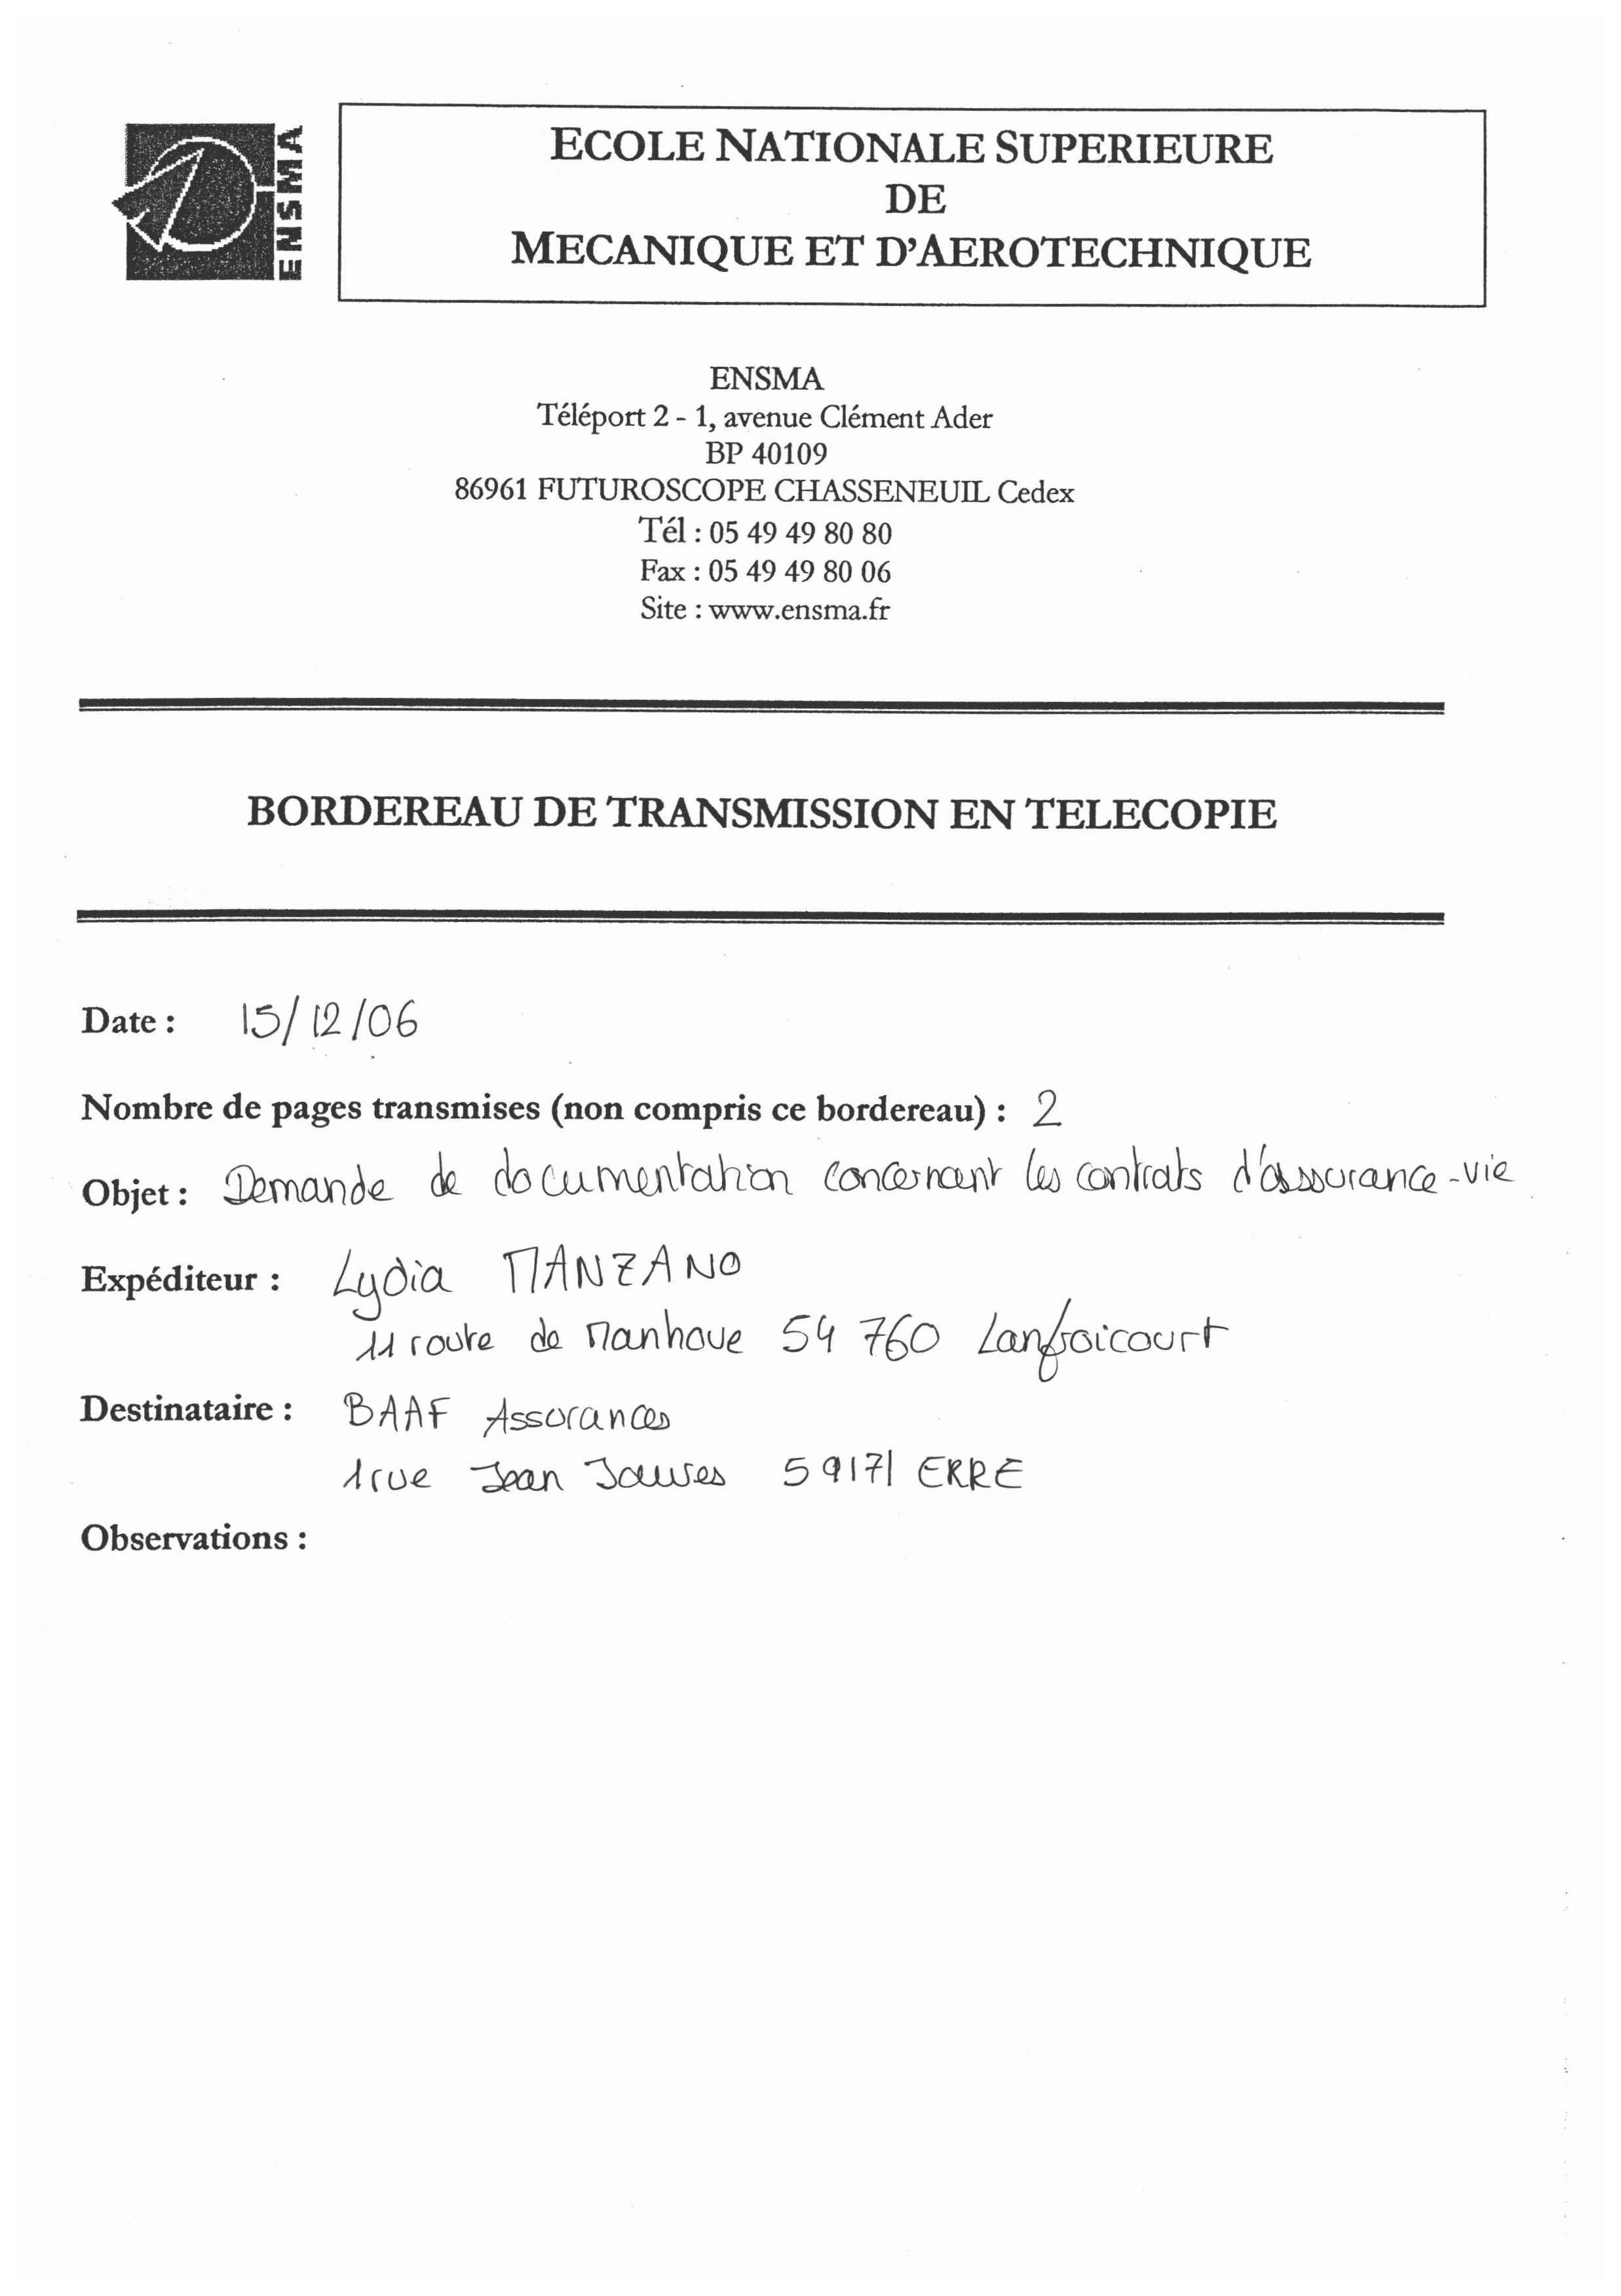 ENSMA
ECOLE NATIONALE SUPERIEURE
DE
MECANIQUE ET D'AEROTECHNIQUE
ENSMA
Téléport 2 - 1, avenue Clément Ader
BP 40109
86961 FUTUROSCOPE CHASSENEUIL Cedex
Tél : 05 49 49 80 80
Fax : 05 49 49 80 06
Site : www.ensma.fr
BORDEREAU DE TRANSMISSION EN TELECOPIE
Date : 15/12/06
Nombre de pages transmises (non compris ce bordereau) : 2
Objet : Demande de documentation concernant les contrats d'assurance-vie
Expéditeur : Lydia MANZANO
11 route de Manhoue 54 760 Lanfroicourt
Destinataire : BAAF Assurances
1 rue Jean Jaures 59171 ERRE
Observations :